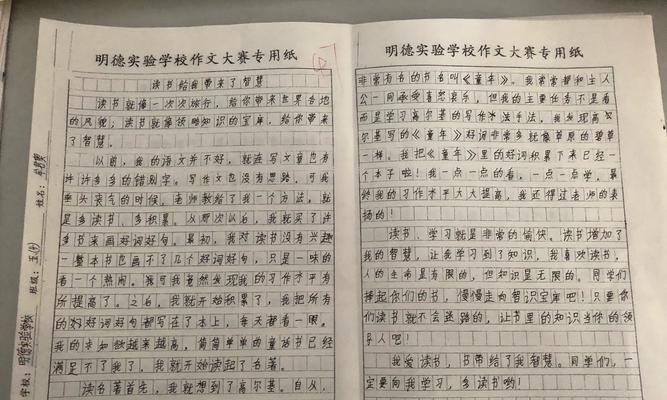 明德实验学校作文大赛专用纸
读书给我带来了智慧
读书就像一次次旅行，给你带来世界各地
的风貌；读书就像领略知识的宝库，给你带来
了智慧。
以前，我的语文并不好，就连写文章也有
许许多多的错别字。写作文也没有思路，可我
垂头丧气的时候，老师教给了我一个方法，就
是多读书、多积累。从那次以后，我就买了许
多书来画好词好句。最初，我对读书没有兴趣
一整本书也画不了几个好词好句，只是一味的
看一个热闹。我可我竟然发现我的习作水平有
所提高了。之后，我就开始积累了，我把所有
的好好词好句都写在了本上，每天都看一眼。
我的求知欲越来越高，简简单单的童话书已经
满足不了我了，我就开始读起了名著。
读名著首先，我就想到了高尔基。自从，
学校：明德实验学校 班级：五 姓名：
明德实验学校作文大赛专用纸
非常有名的书名叫《童年》。我常常帮和主人
公一同承受喜怒哀乐，但我的主要任务不是看
而是学习高尔基的写作手法，我发现高
尔基写的《童年》好词非常多就像草原的碧草
一样。我把《童年》里的好词积累下来已经一
个本子啦！我一点一点的看，一点一点学，最
终我的习作水平大大提高，我还得过老师的表
扬的！
读书、学习就是非常的愉快。读书增加了
我的智慧，让我学习到了知识，我喜欢读书，
人的生命是有限的，但知识是无限的。同学们
捧起你们的书，慢慢走向智识宝库吧！只要你
们读书就不会迷路的，让书里的知识当你的领
导人吧！
我爱读书，书带给了我智慧。同学们，一
定要向我学习，多读书哟！